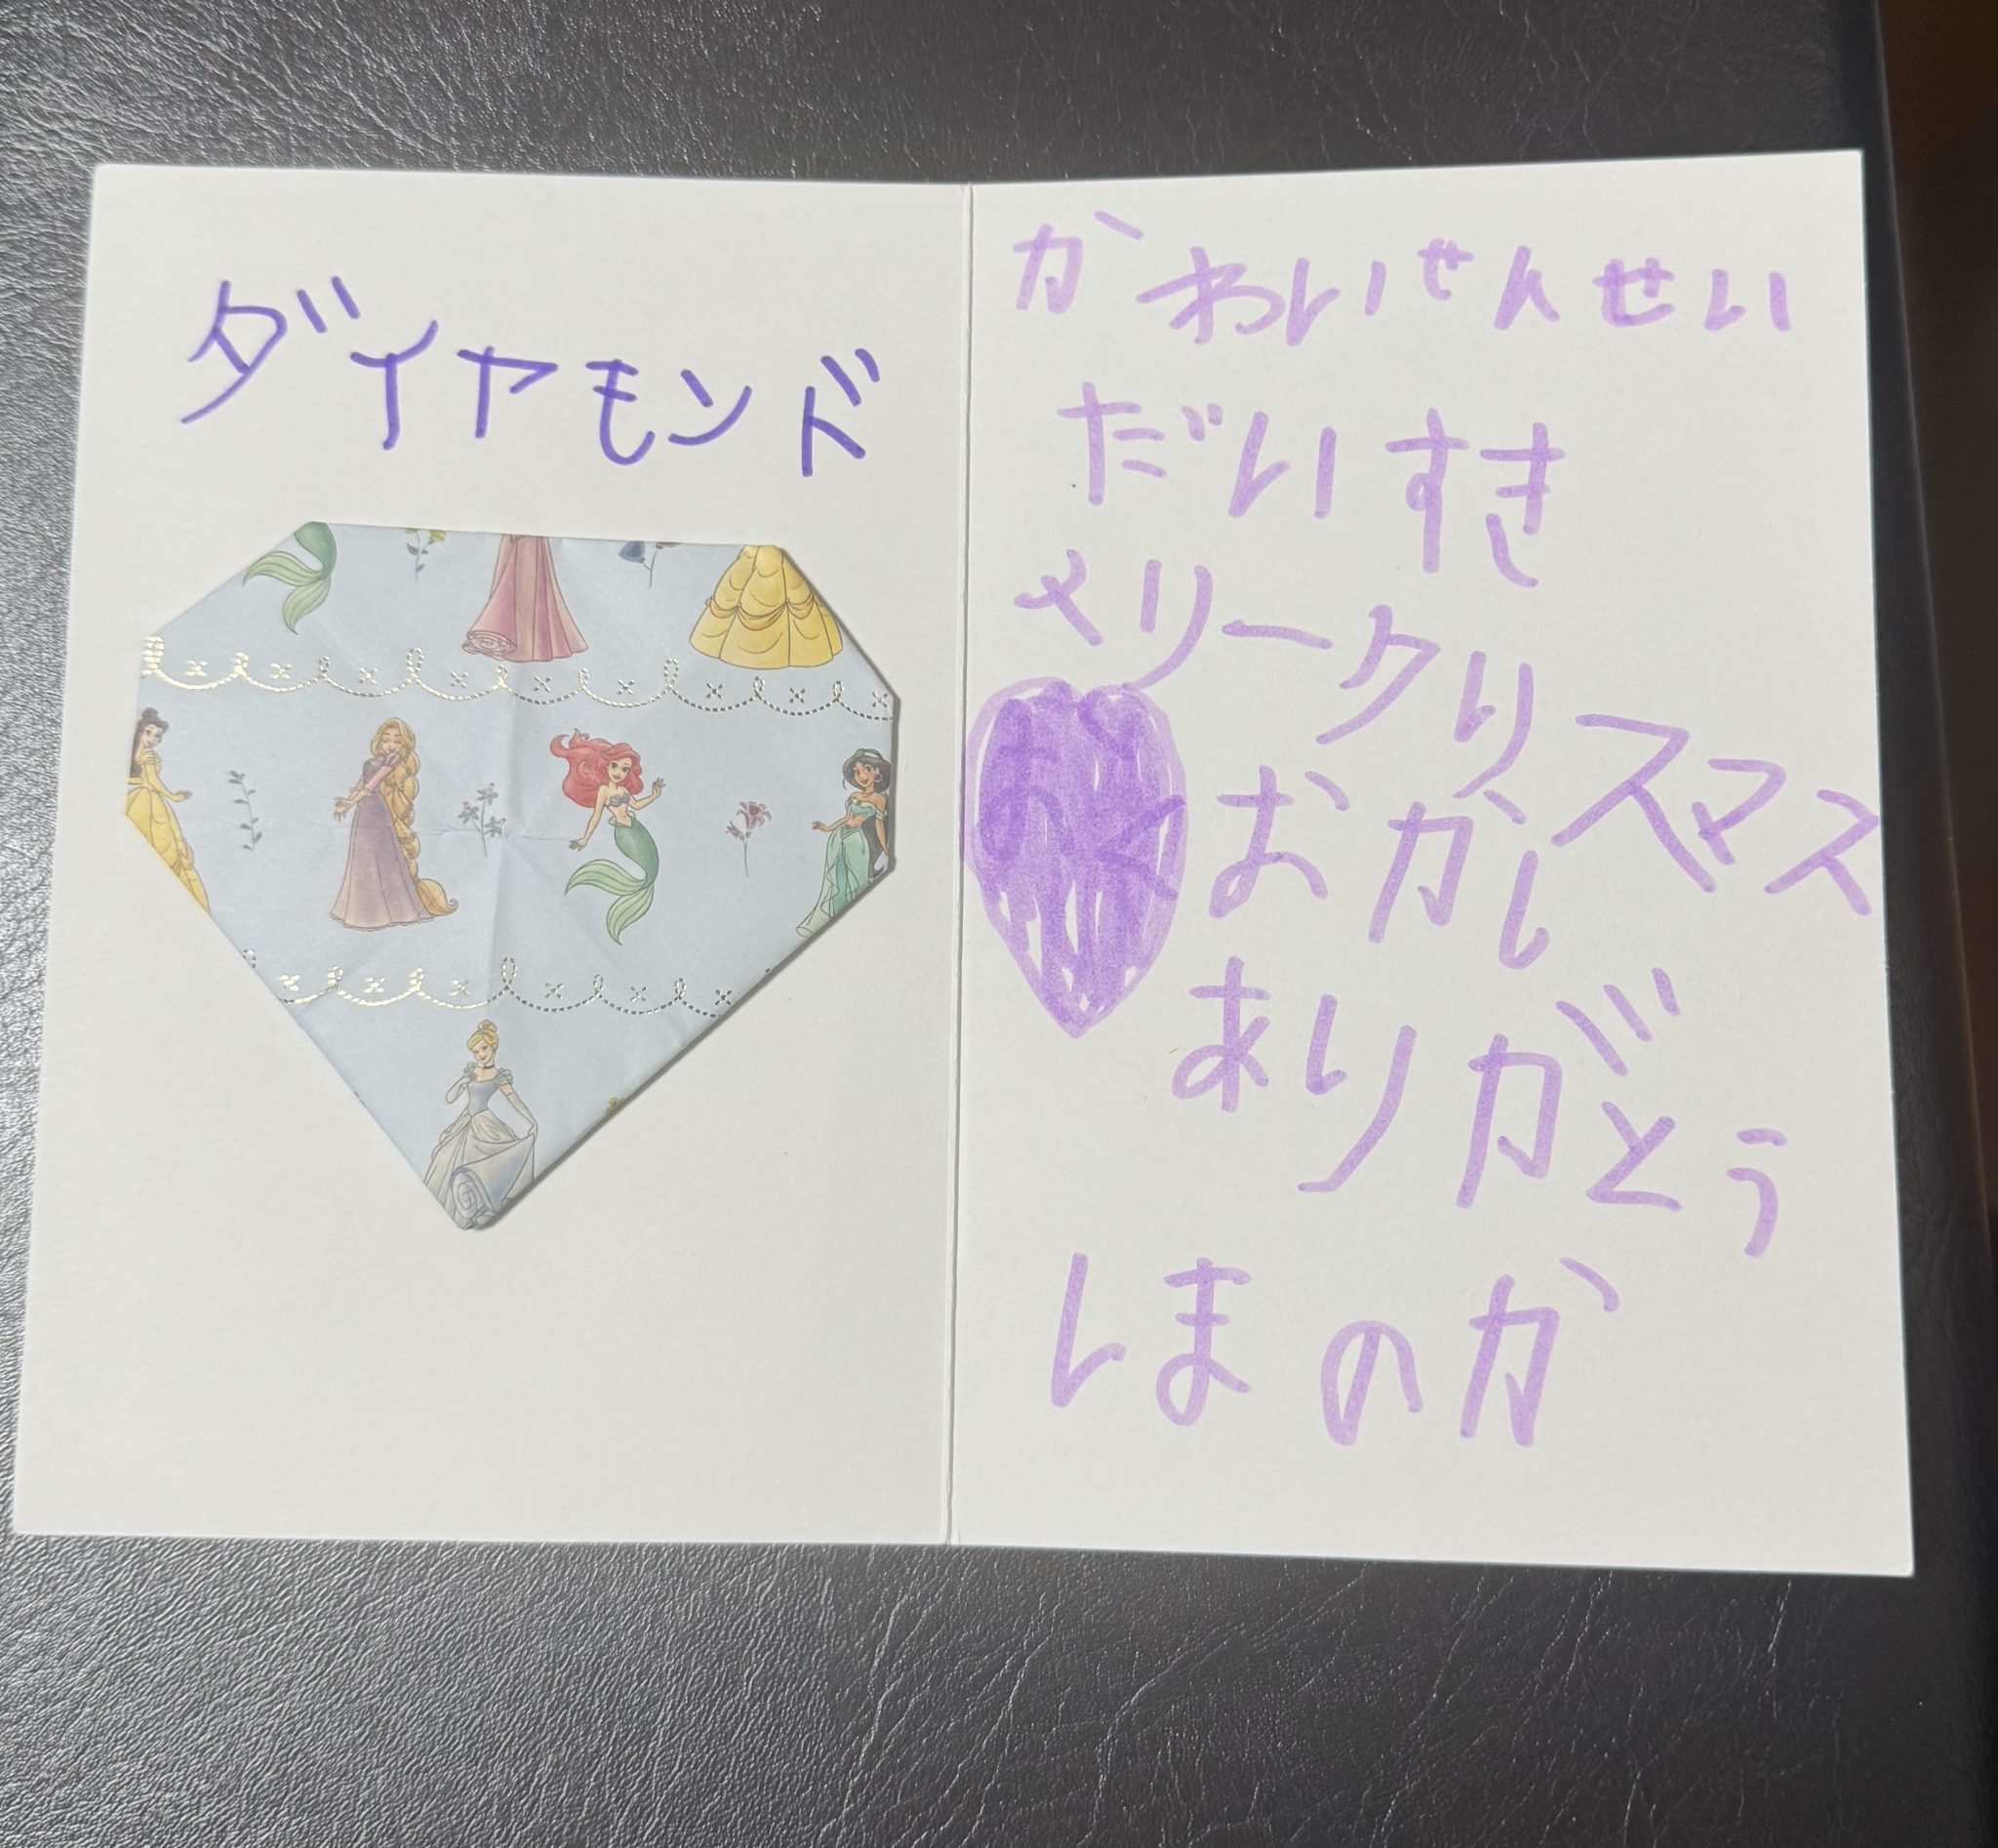 ダイヤモンド
かわいせんせい
だいすき
メリークリスマス
おかし
ありがとう
しまのか